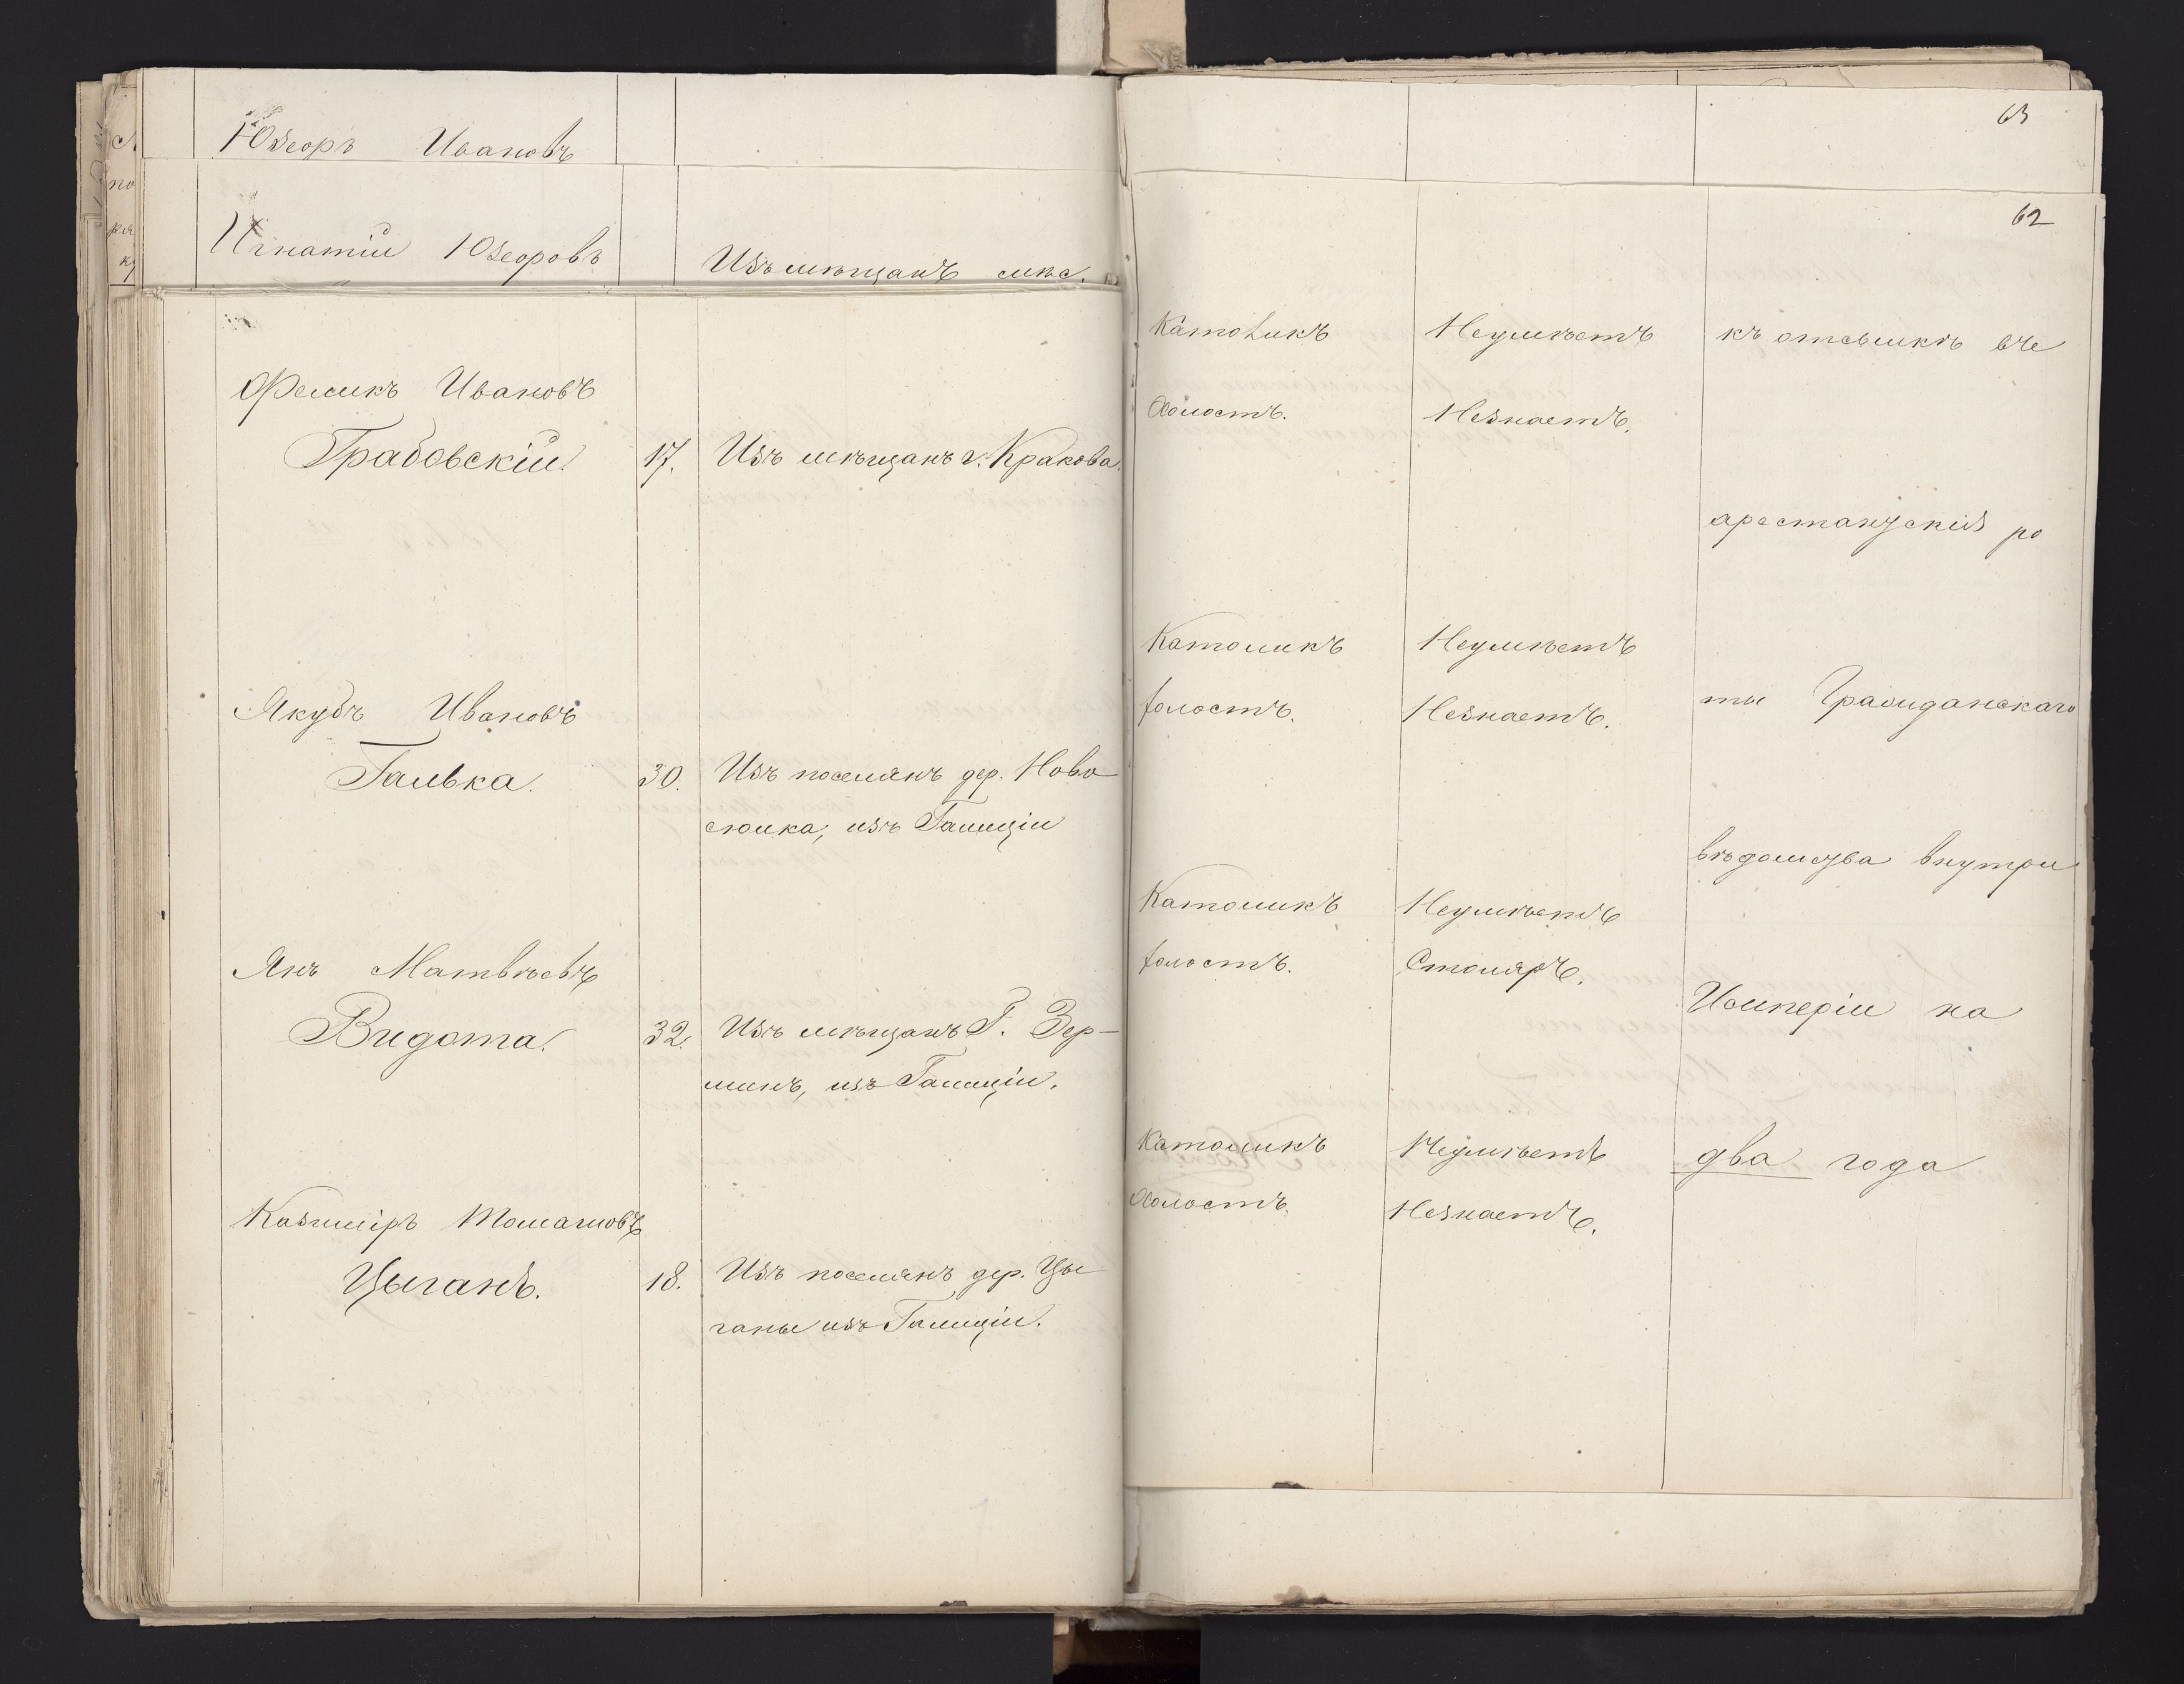 Юзеоръ Ивановъ
63
Игнатій Юзеоровъ
Изъ мѣщанъ мѣс.
62
Феликъ Ивановъ
Грабовскій
17.
Изъ мѣщанъ г. Кракова.
Католикъ
Неумѣетъ
къ отсылкѣ въ
Холостъ.
Незнаетъ.
арестантскія ро
Якубъ Ивановъ
Галька.
30.
Изъ поселянъ дер. Ново
сюлка, изъ Галиціи
Католикъ
Неумѣетъ
ты Гражданскаго
холостъ.
Незнаетъ.
вѣдомства внутри
Янъ Матвѣевъ
Видота.
32.
Изъ мѣщанъ Г. Зер-
минъ, изъ Галиціи.
Католикъ
Неумѣетъ
холостъ.
Столяръ.
Имперіи на
Казиміръ Томашовъ
Цыганъ.
18.
Изъ поселянъ дер. Цы
ганы изъ Галиціи.
Католикъ
Неумѣетъ
два года
Холостъ.
Незнаетъ.